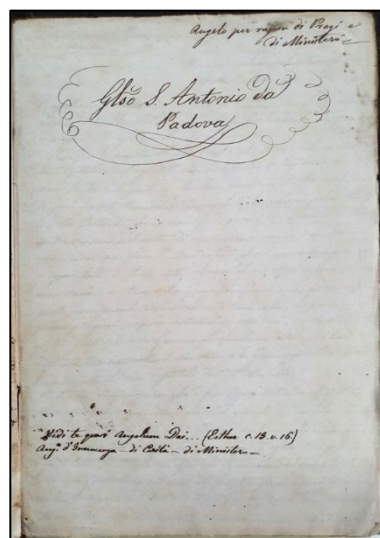 Angelo per ragion di Pregi e
di Ministeri
Glso S. Antonio da
Padova
Vidi te quasi Angelum Dei... (Esther c. 15. v. 16)
Ang. d'Innocenza - di Carità - di Ministero -